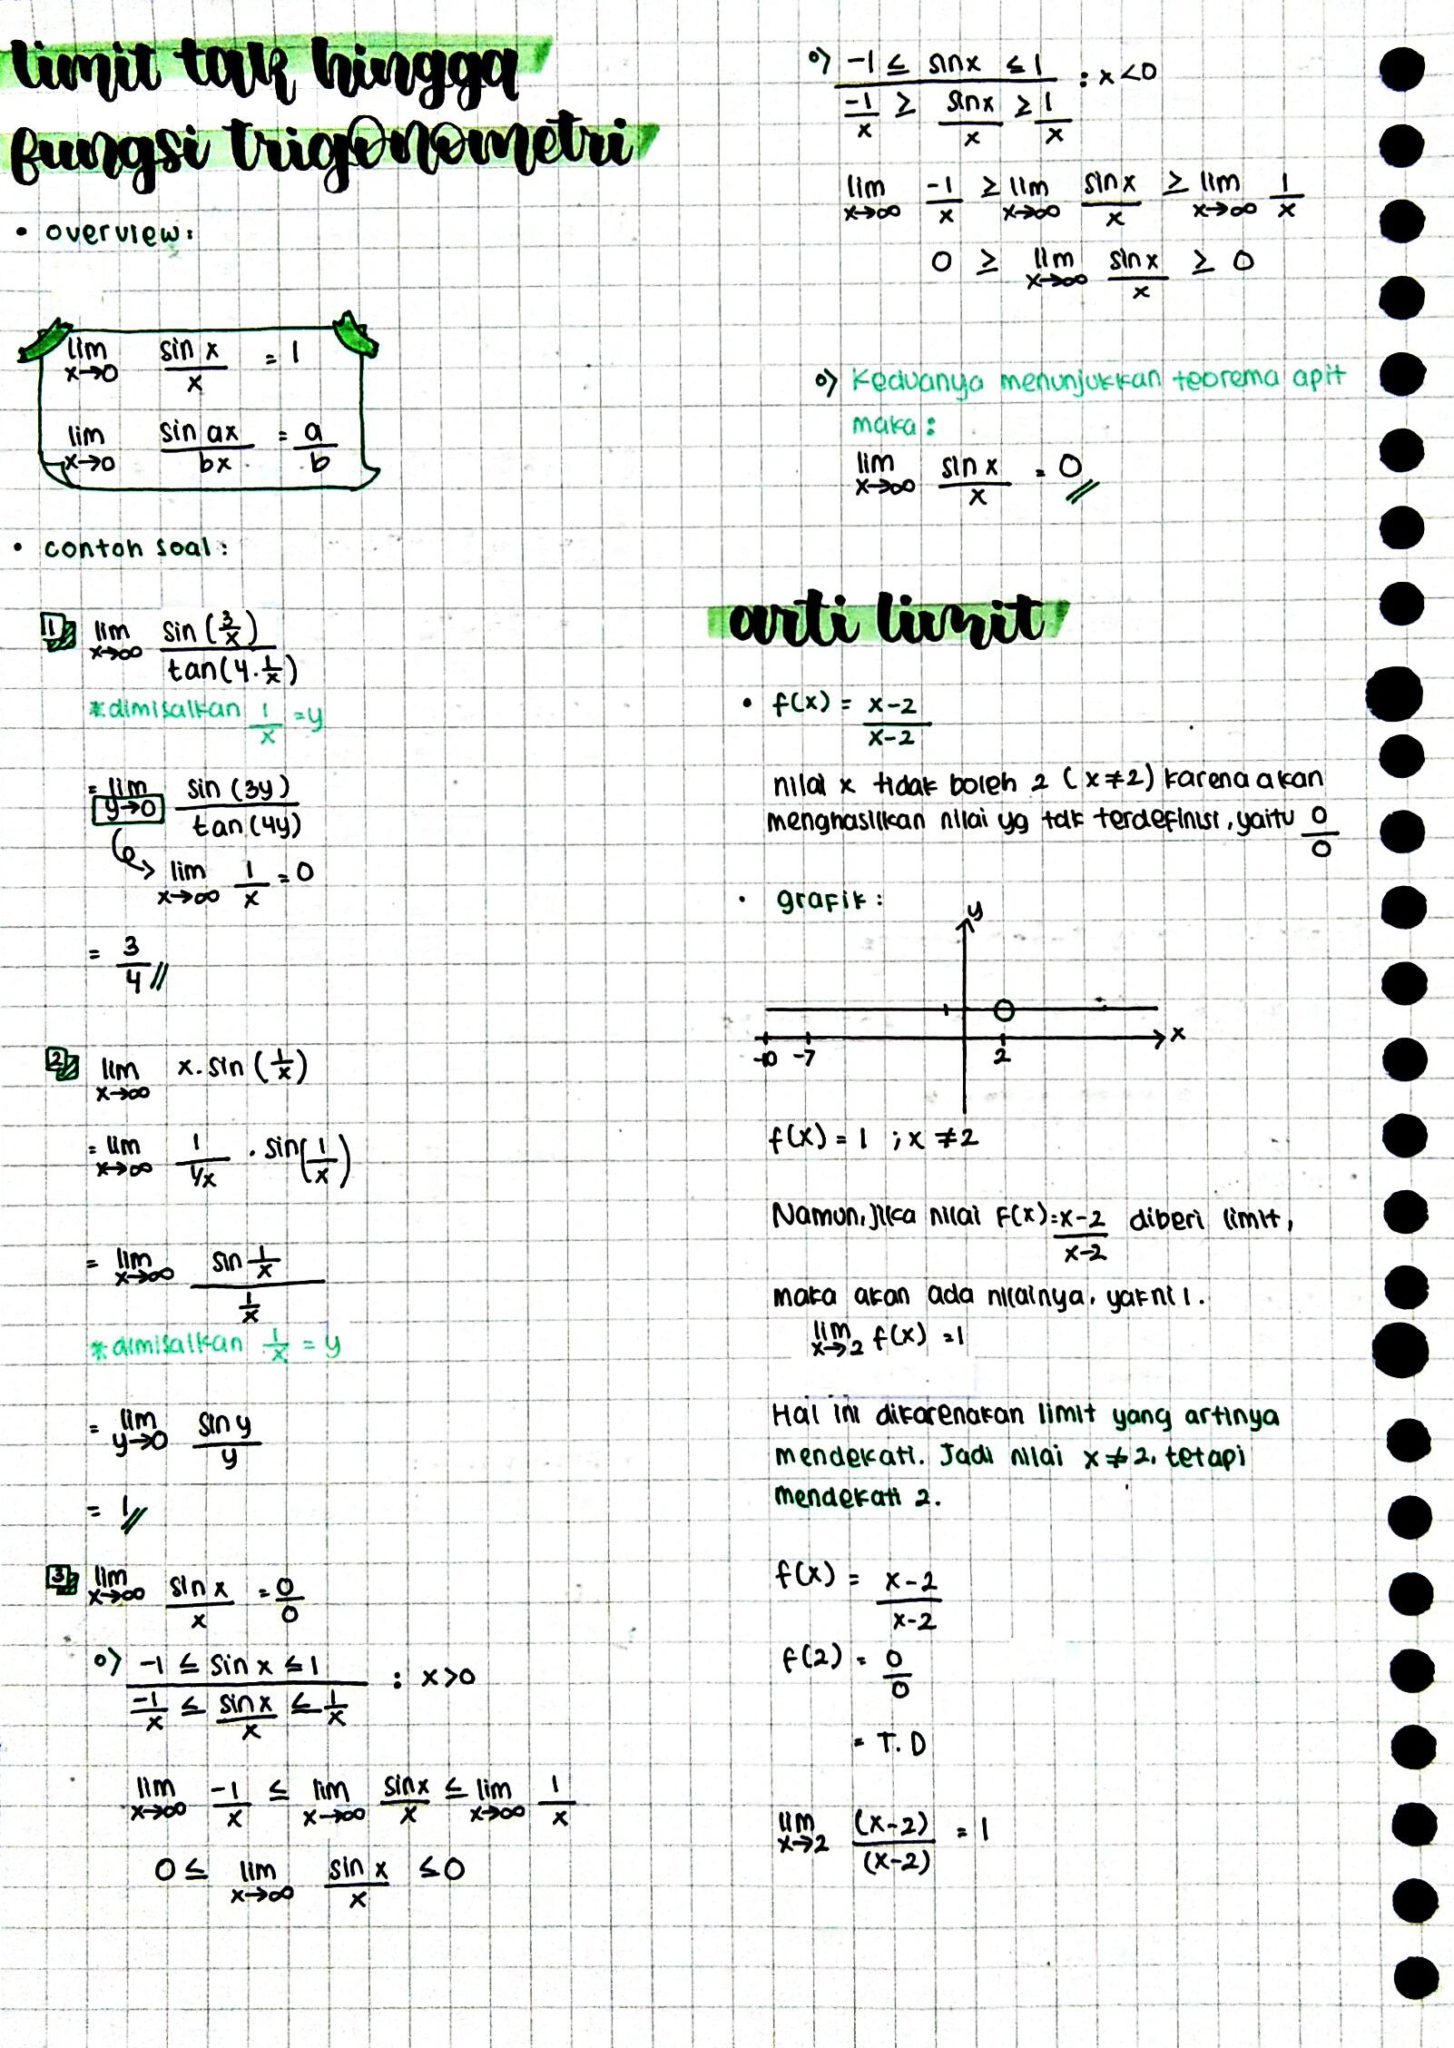 limit tak hingga
fungsi trigonometri
• overview:
lim x→0 sin x / x = 1
lim x→0 sin ax / bx = a/b
• contoh soal:
1 lim x→∞ sin (3/x) / tan (4 · 1/x)
*dimisalkan 1/x = y
= lim y→0 sin (3y) / tan (4y)
lim x→∞ 1/x = 0
= 3/4 //
2 lim x→∞ x · sin (1/x)
= lim x→∞ 1 / 1/x · sin (1/x)
= lim x→∞ sin 1/x / 1/x
*dimisalkan 1/x = y
= lim y→0 sin y / y
= 1 //
3 lim x→∞ sin x / x = 0/0
o) -1 ≤ sin x ≤ 1 : x > 0
-1/x ≤ sin x / x ≤ 1/x
lim x→∞ -1/x ≤ lim x→∞ sin x / x ≤ lim x→∞ 1/x
0 ≤ lim x→∞ sin x / x ≤ 0
o) -1 ≤ sin x ≤ 1 : x < 0
-1/x ≥ sin x / x ≥ 1/x
lim x→∞ -1/x ≥ lim x→∞ sin x / x ≥ lim x→∞ 1/x
0 ≥ lim x→∞ sin x / x ≥ 0
o) Keduanya menunjukkan teorema apit
maka:
lim x→∞ sin x / x = 0 //
arti limit
• f(x) = x-2 / x-2
nilai x tidak boleh 2 (x ≠ 2) karena akan
menghasilkan nilai yg tdk terdefinisi, yaitu 0/0
• grafik:
y
x
-10 -7 2
f(x) = 1 ; x ≠ 2
Namun, jika nilai f(x) = x-2 / x-2 diberi limit,
maka akan ada nilainya, yakni 1.
lim x→2 f(x) = 1
Hal ini dikarenakan limit yang artinya
mendekati. Jadi nilai x ≠ 2, tetapi
mendekati 2.
f(x) = x-2 / x-2
f(2) = 0/0
= T.D
lim x→2 (x-2) / (x-2) = 1